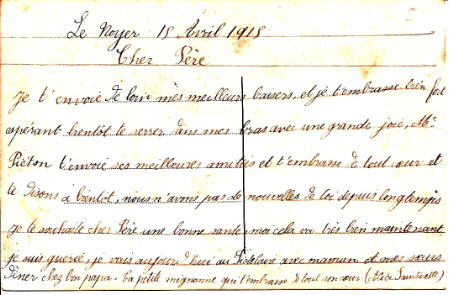 Le Noyer 15 Avril 1915
Cher Père
Je t'envoie de loin mes meilleurs baisers, et je t'embrasse bien fort
espérant bientôt te serrer dans mes bras avec une grande joie, Mr
Piéton t'envoie ses meilleures amitiés et t'embrasse de tout cœur et
te disons à bientôt, nous n'avons pas de nouvelles de toi depuis longtemps
je te souhaite cher Père une bonne santé, moi cela va très bien maintenant
je suis guerie, je vais aujourd'hui au avec maman et mes sœurs
Diner chez bon papa. Ta petite mignonne qui t'embrasse de tout son cœur